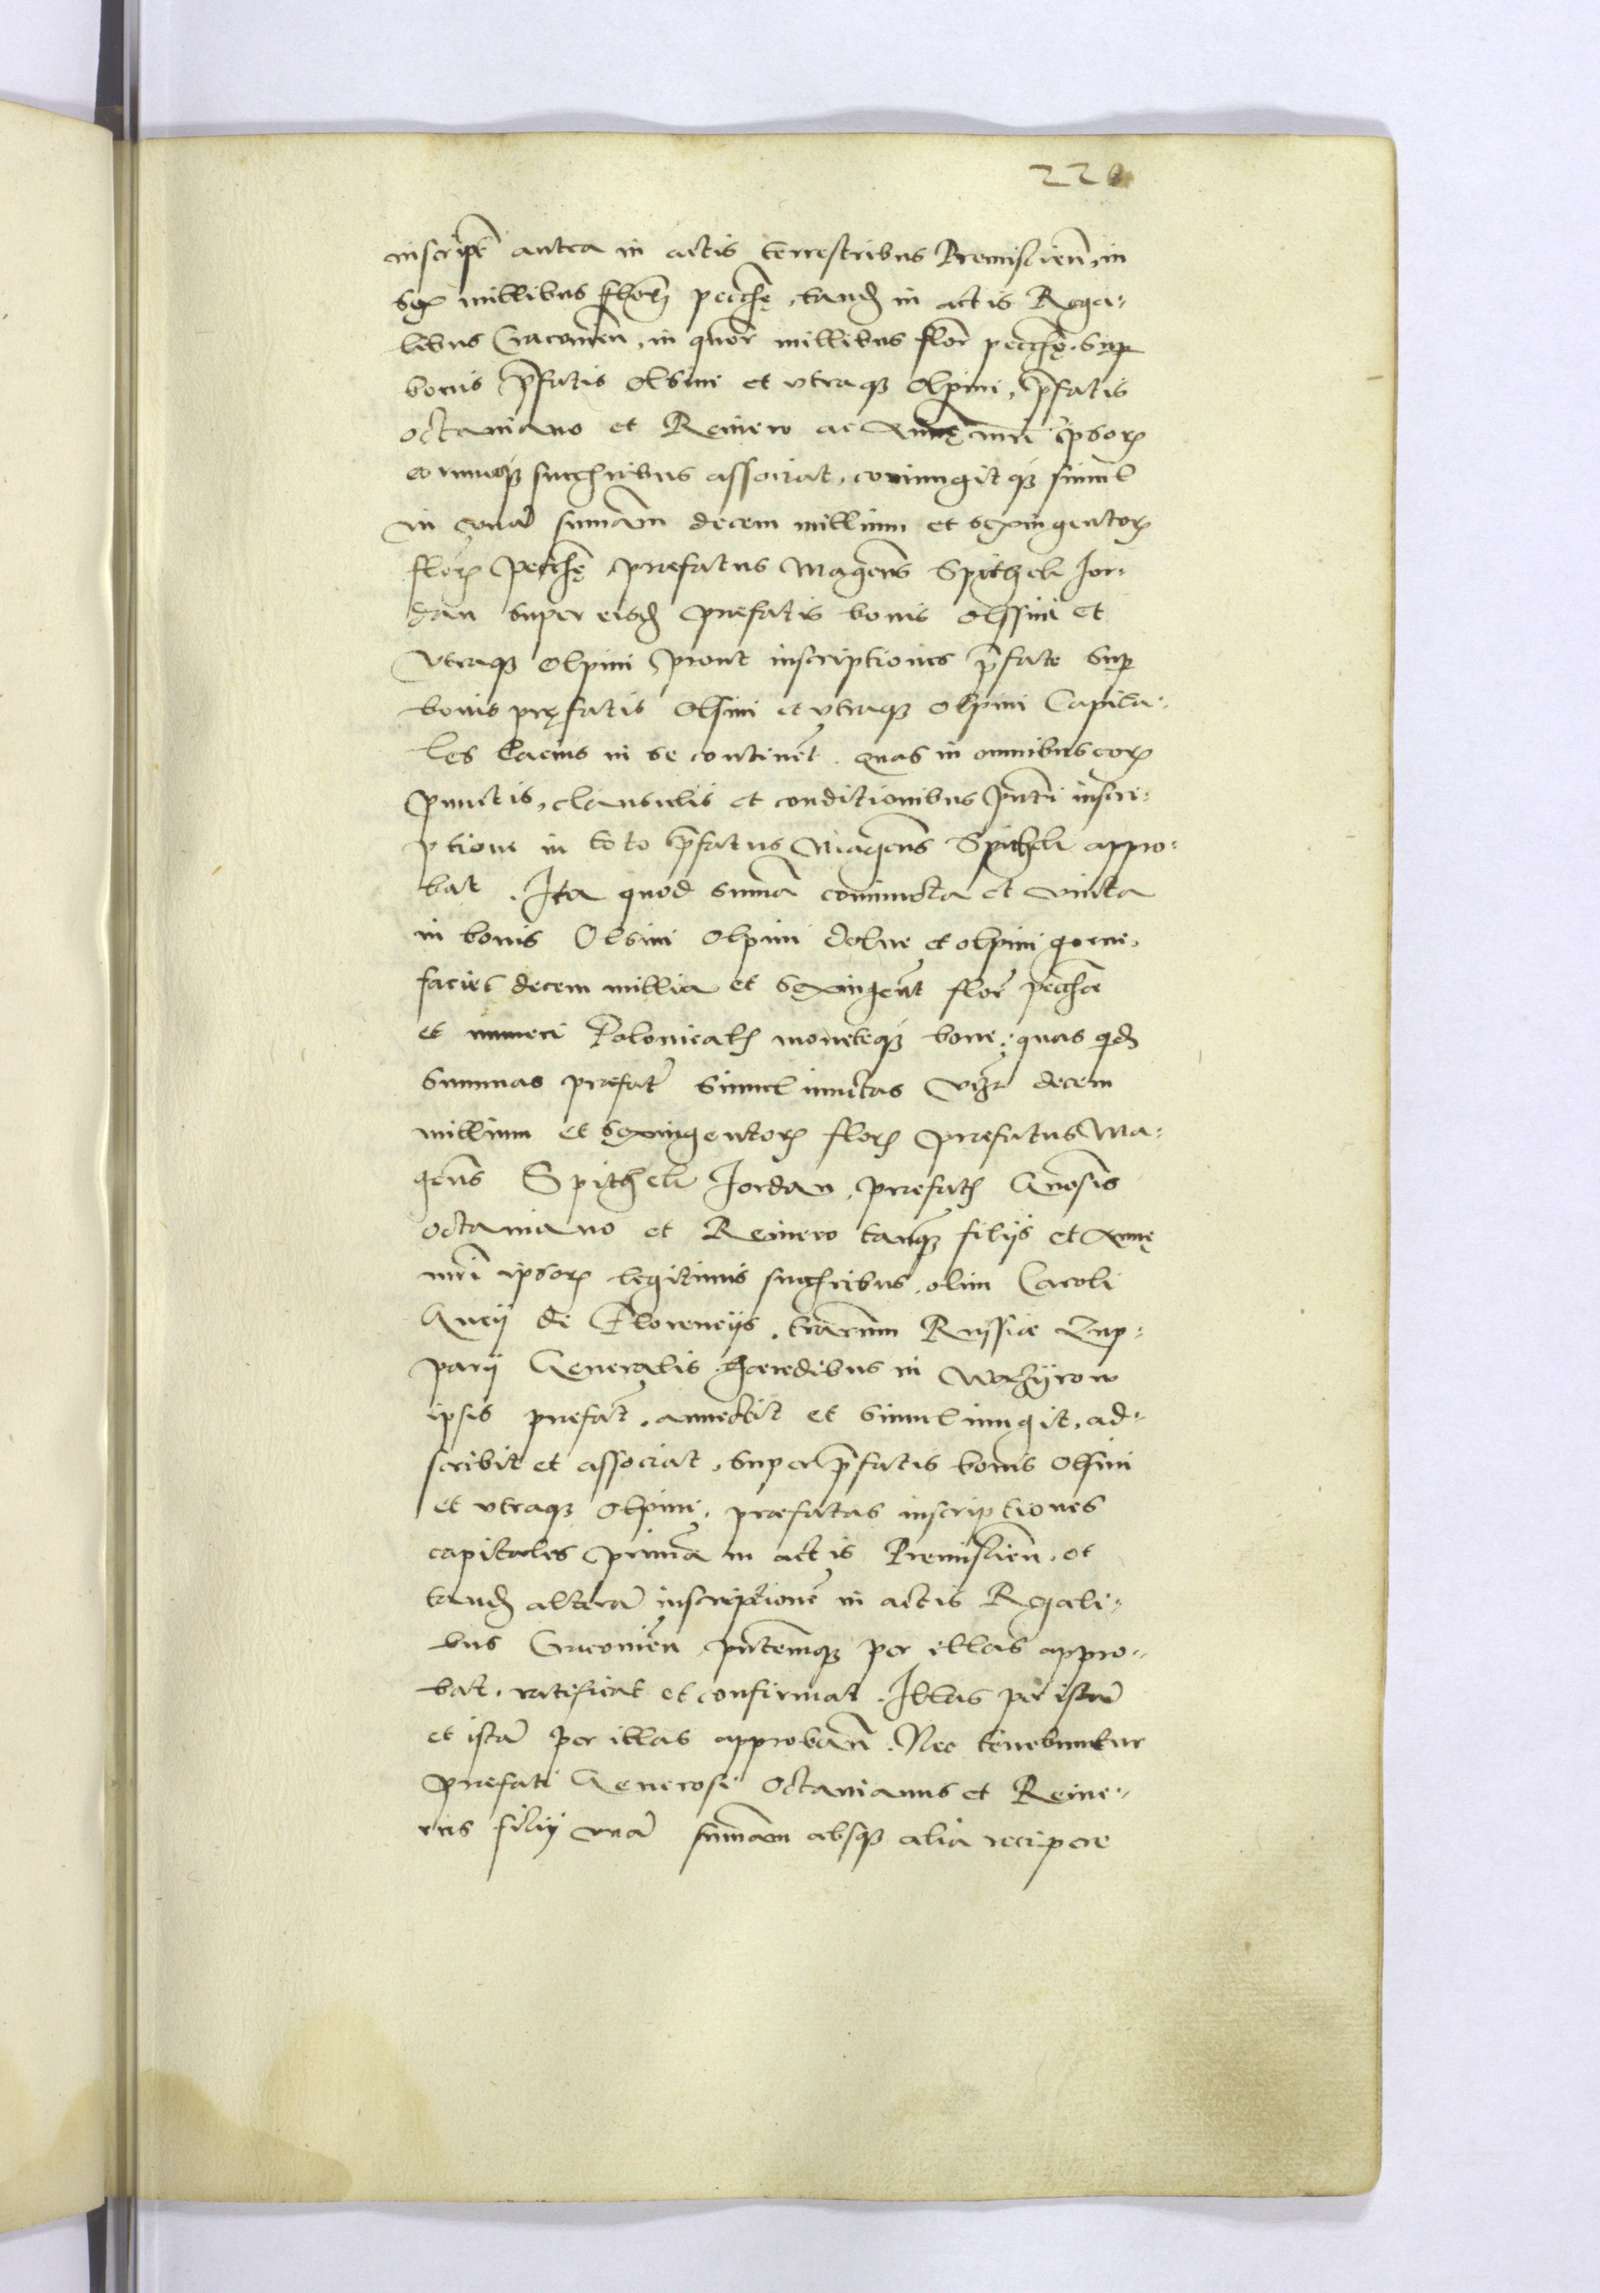 220
inscript antea in actis terrestribus Premislien, in
sex millibus floren pecunię, tandem in actis Rega-
libus Cracovien, in quatuor millibus flor pecunię. Sup
bonis p̄fatis Olsini et utraq Olpini, p̄fatis
Octaviano et Reinero ac Annę mri ipsorum
eorumq successoribus associat, coniungitq simul
in unā sumam decem millium et sexingentorum
florum pecunię praefatus Magcus Spithek Jor-
dan super eisdem praefatis bonis Olssini et
Utraq Olpini prout inscriptiones p̄fate sup
bonis pręfatis Olsini et utraq Olpini Capita-
les lacius in se continet. quas in omnibus eorum
punctis, clausulis et conditionibus pn̄ti inscri-
ptione in toto p̄fatus Magcus Spithek appro-
bat. Ita quod sumā coniuncta et unita
in bonis Olsini Olpini dolne et olpini gorne,
faciet decem millia et sexingent flor pecuniae
et numeri Polonicalis moneteq bone: quas qdem
summas praefat simul iunctas vizt decem
millium et sexingentorum florum praefatus Ma-
gcus Spithek Jordan, praefatis Gnosis
Octaviano et Reinero tanq filiis et Annę
mri ipsorum legitimis successoribus, olim Caroli
Gucij de Florencijs, trarum Russiae Zup-
parij Generalis haeredibus in
ipsis praefat, annectit et simul iungit, ad-
scribit et associat, super p̄fatis bonis Olsini
et utraq Olpini, praefatas inscriptiones
capitales primā in actis Premislien, et
tandem alterā inscriptionē in actis Regali-
bus Cracovien pntemq per illas appro-
bat, ratificat et confirmat. Illas per istā
et istā per illas approban. Nec tenebuntur
praefati Generosi Octavianus et Reine-
rus filij unā sumam absq alia recipere